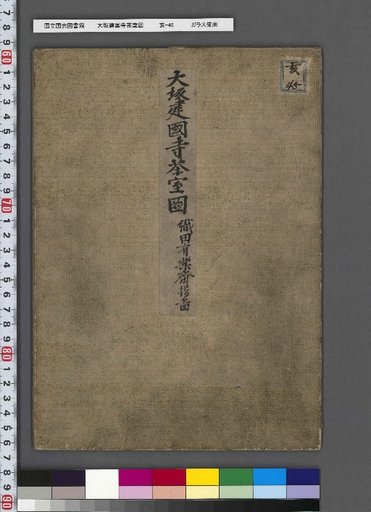 国立国会図書館 大坂建国寺茶室図 亥-45 ガラス使用
亥
45
大坂建國寺茶室圖
織田有樂齋
7
8
9
60
1
2
3
4
5
6
7
8
9
70
1
2
3
4
5
6
7
8
9
80
1
2
3
4
5
6
7
8
9
90